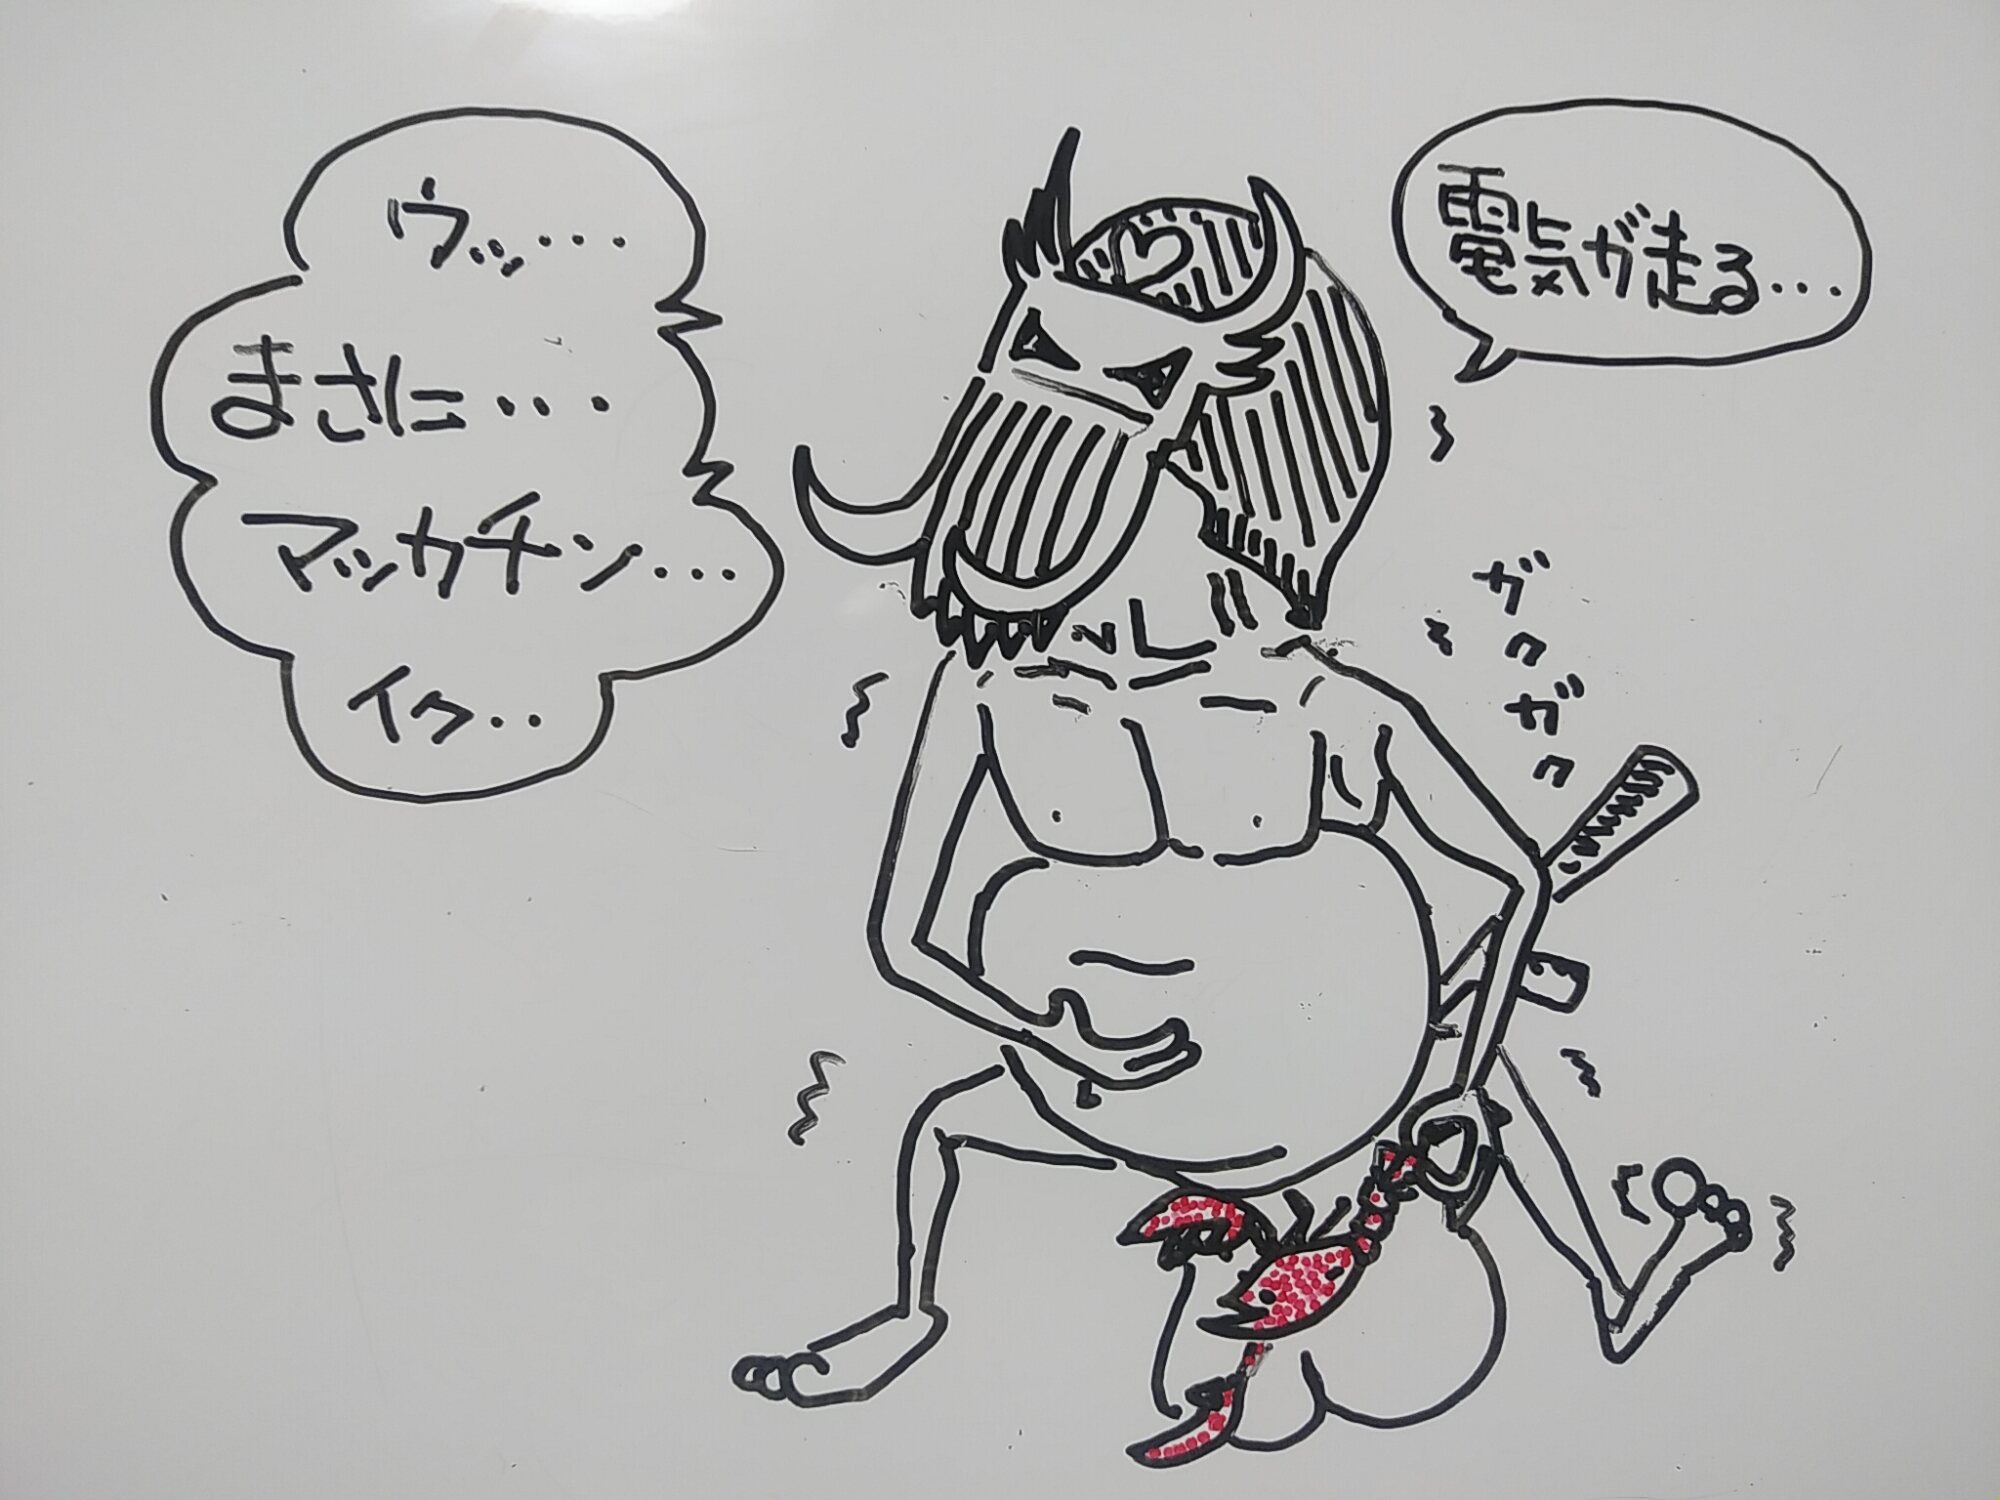 ウッ・・・
まさに・・・
マッカチン・・・
イク・・
電気が走る・・・
ガクガク